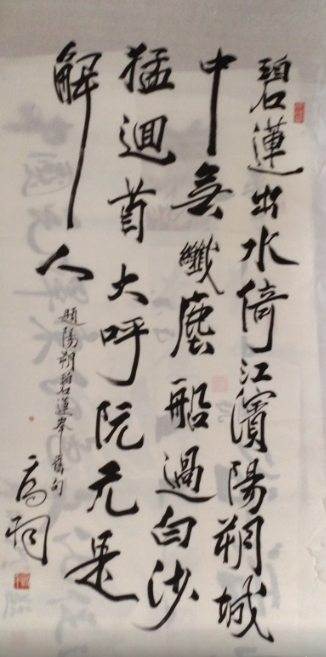 碧蓮出水倚江濱陽朔城
中無纖塵船過白沙
猛迴首大呼阮元是
解人
題陽朔碧蓮峯舊句